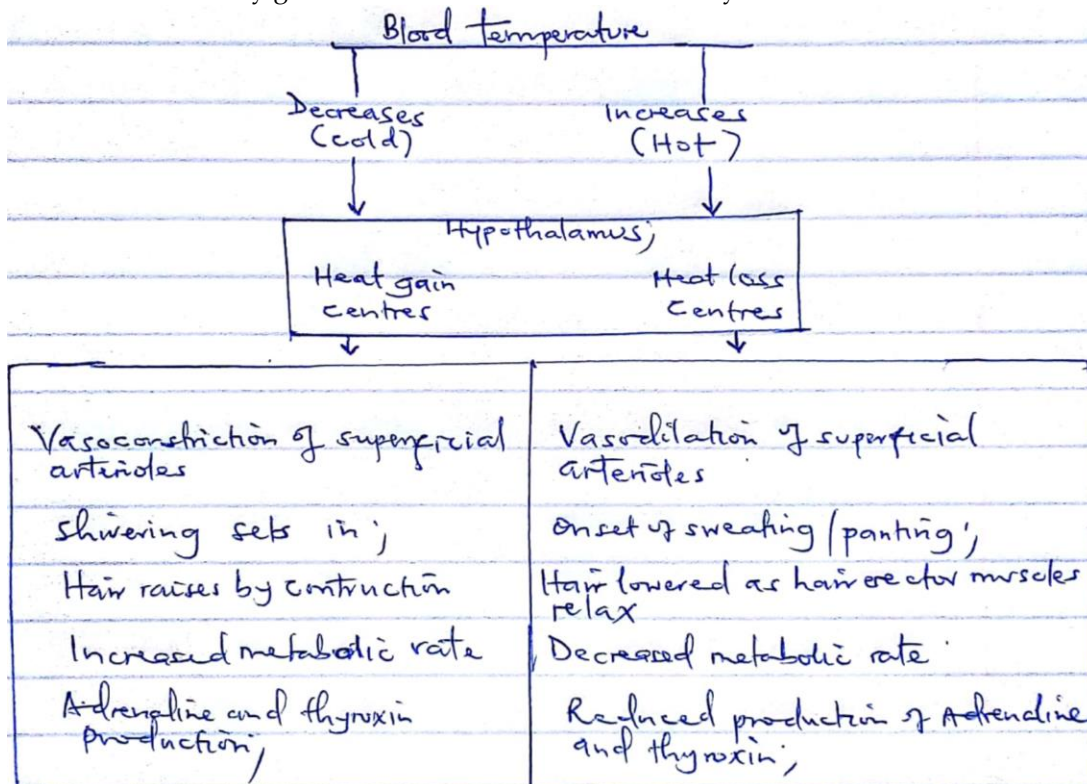 Blood temperature
Decreases
(cold)
Increases
(Hot)
Hypothalamus;
Heat gain
centres
Heat loss
centres
Vasoconstriction of superficial
arterioles
Shivering sets in ;
Hair raises by contruction
Increased metabolic rate
Adrenaline and thyroxin
production;
Vasodilation of superficial
arterioles
onset of sweating / panting ;
Hair lowered as hair erector muscles
relax
Decreased metabolic rate
Reduced production of Adrenaline
and thyroxin;